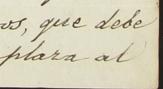 os, que debe
plaza al